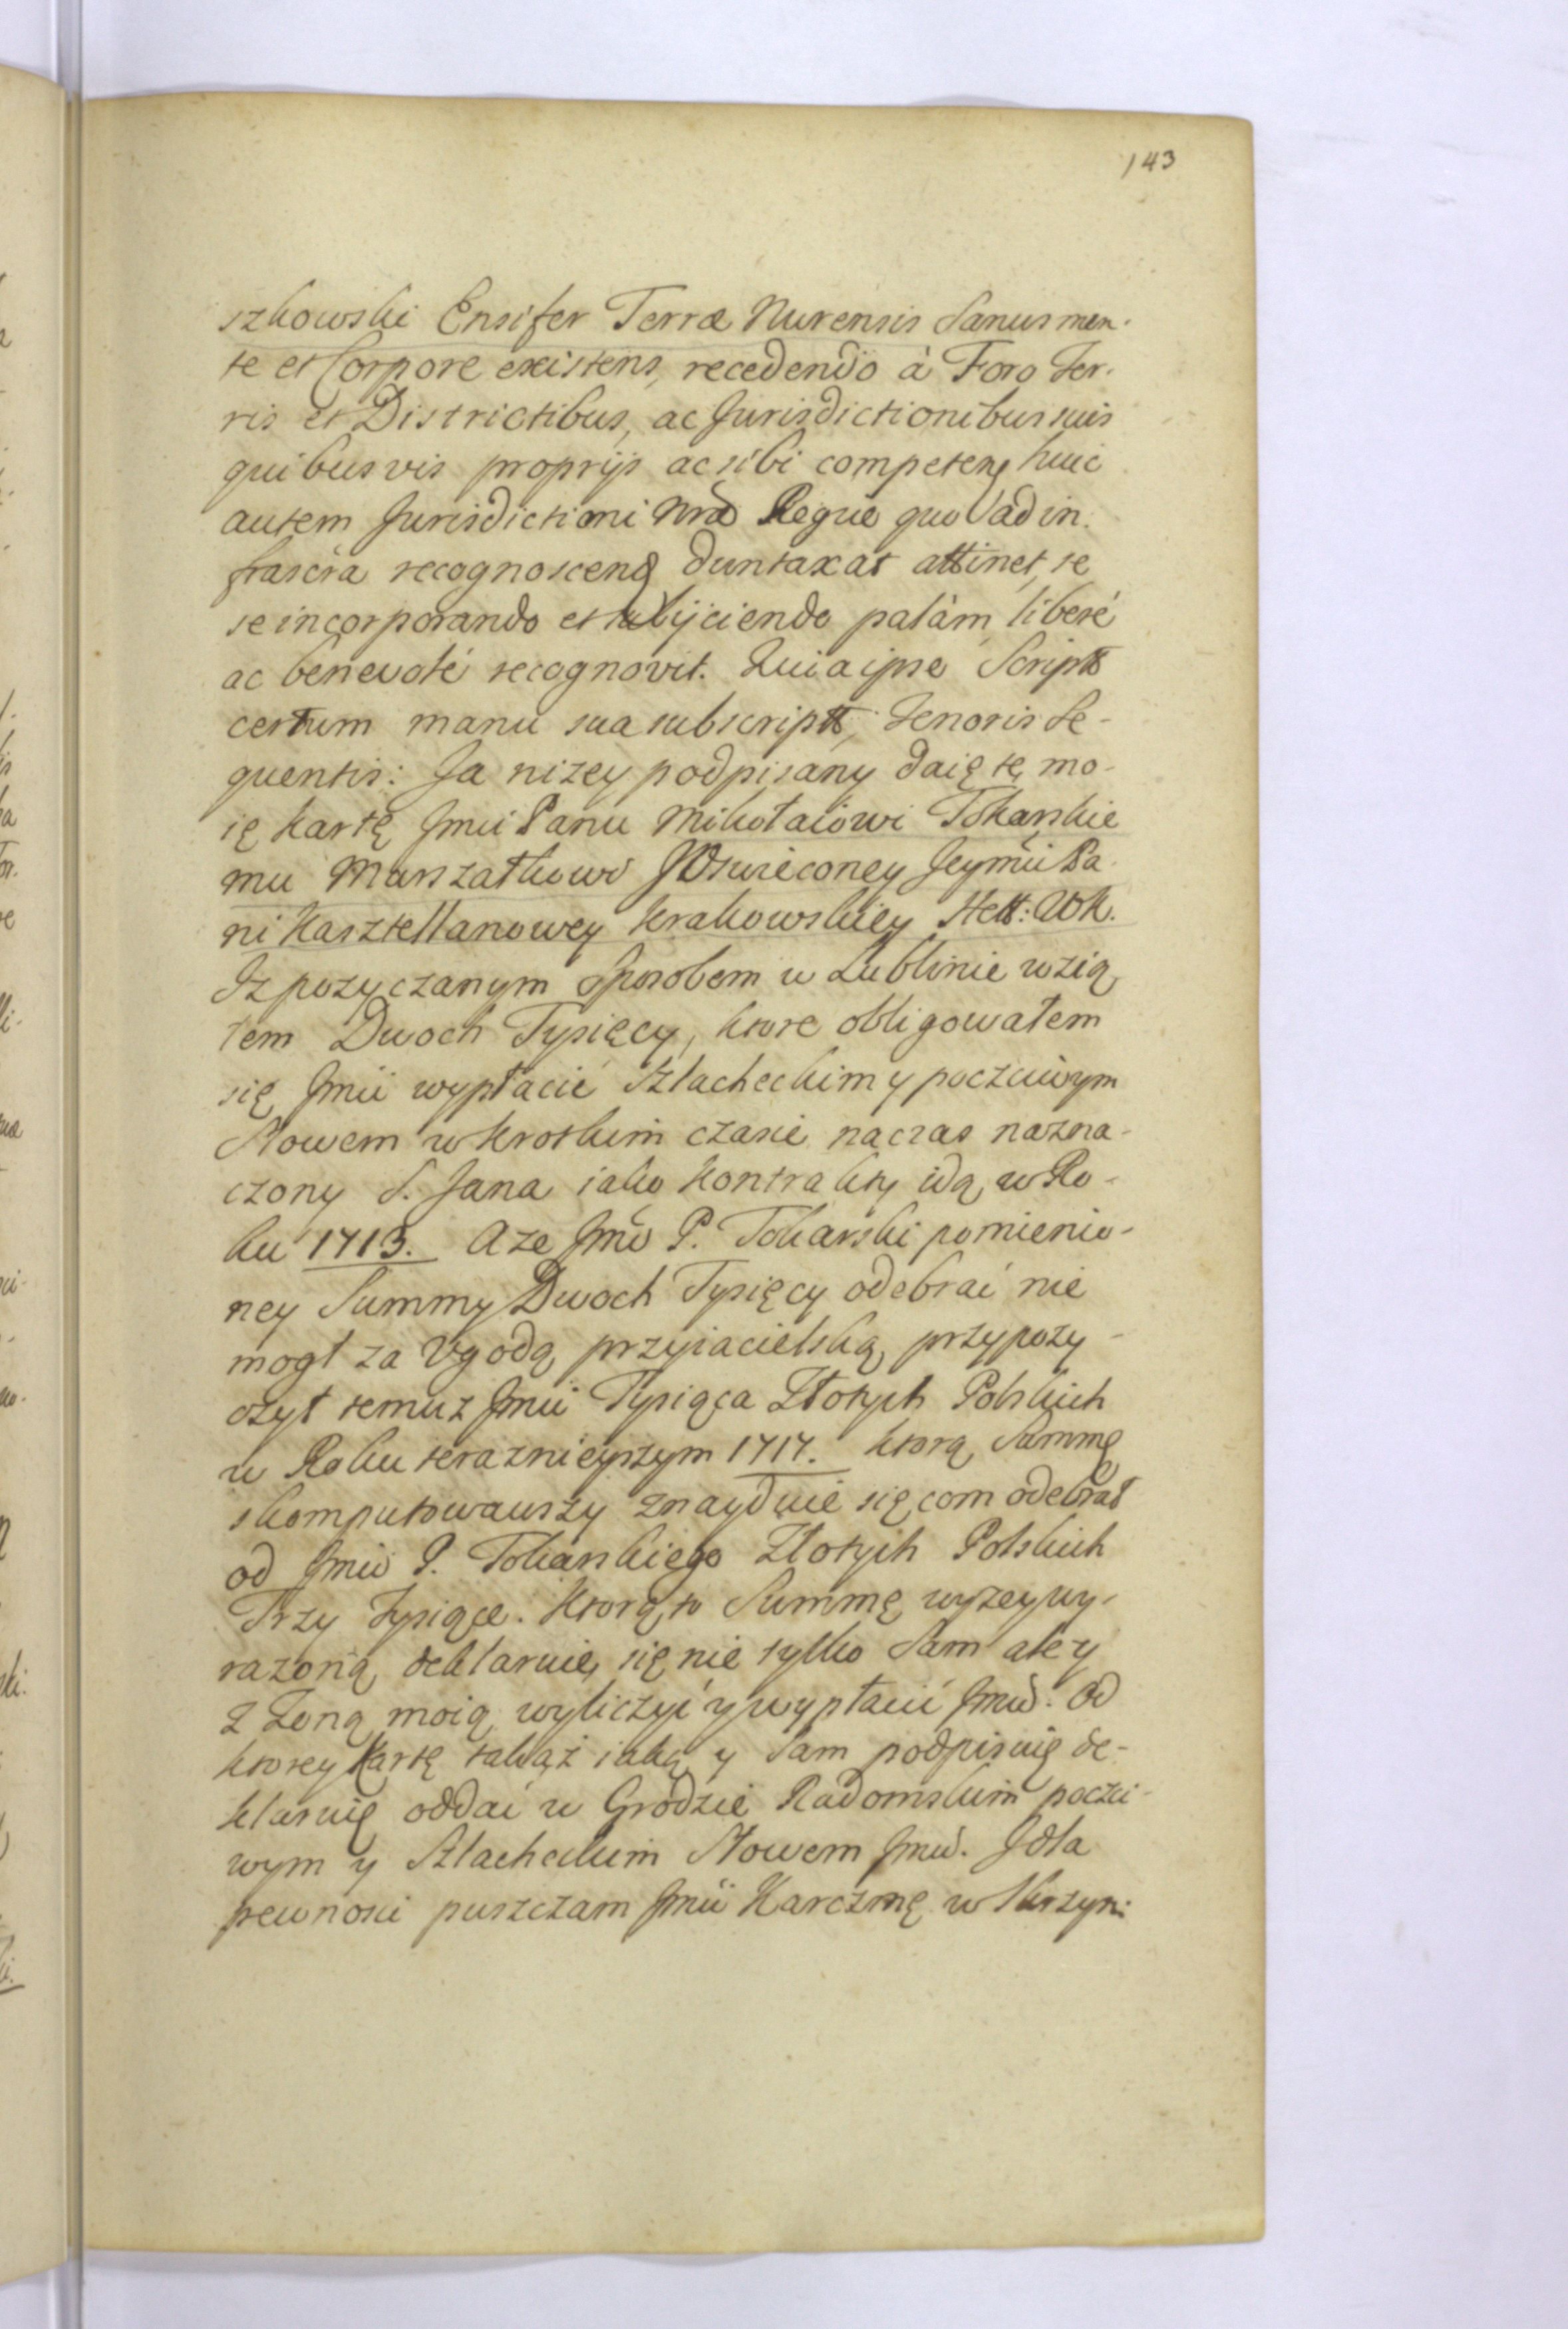 143
szkowski Ensifer Terræ Nurensis Sanus men-
te et Corpore existens, recedendo à Foro Ter-
ris et Districtibus, ac Jurisdictionibus suis
quibusvis proprijs ac sibi competen huic
autem Jurisdictioni Nræ Regiæ quo ad in-
frascra recognoscend duntaxat attinet, se
se incorporando et subijciendo palàm, liberé
ac benevolé recognovit. Quia ipse Scriptt
certum manu sua subscriptt, Tenoris Se-
quentis: Ja nizey podpisany daię tę mo-
ię kartę Jmci Panu Mikołaiowi Tokarskie
mu Marszałkowi JOswieconey Jeymci Pa-
ni Kasztellanowey Krakowskiey Hett: WK.
Iz pozyczanym Sposobem w Lublinie wzią
łem Dwoch Tysięcy, ktore obligowałem
się Jmci wypłacić Szlacheckim y poczciwym
Słowem w krotkim czasie na czas nazna-
czony S. Jana iako Kontrakty idą w Ro-
ku 1713. A ze Jmć P. Tokarski pomienio-
ney Summy Dwoch Tysięcy odebrać nie
mogł za Vgodą przyiacielską przypozy-
czył temuz Jmci Tysiąca Złotych Polskich
w Roku teraznieyszym 1717. ktorą Summę
skomputowawszy znayduie się com odebrał
od Jmci P. Tokarskiego Złotych Polskich
Trzy Tysiące. Ktorą to Summę wyzey wy-
razoną deklaruię się nie tylko Sam ale y
z Zoną moią wyliczyć y wypłacić Jmci. Od
ktorey kartę takąż iaką y Sam podpisuię de-
klaruię oddać w Grodzie Radomskim poczci-
wym y Szlacheckim Słowem Jmci. J dla
pewności puszczam Jmci Karczmę w Krzyni-